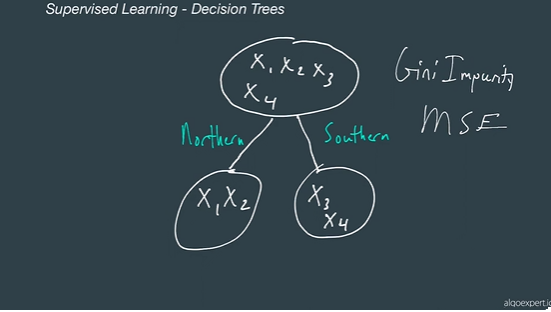 Supervised Learning - Decision Trees
X1 X2 X3
X4
Gini Impurity
MSE
Northern
Southern
X1 X2
X3
X4
algoexpert.io